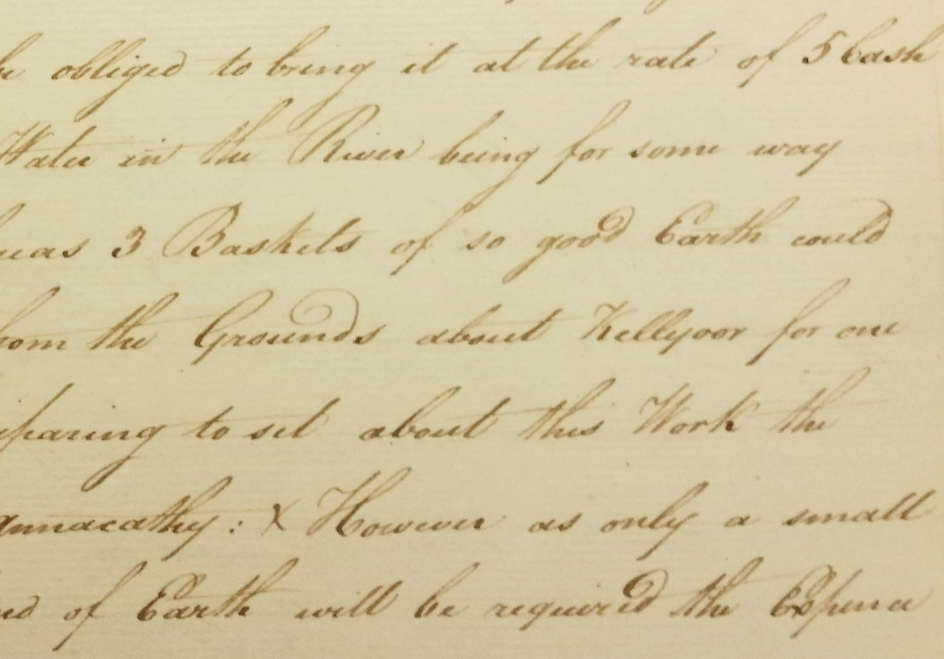 be obliged to bring it at the rate of 5 Cash
Water in the River being for some way
3 Baskets of so good Earth could
from the Grounds about Kellyoor for one
to set about this Work the
: x However as only a small
of Earth will be required the Expence